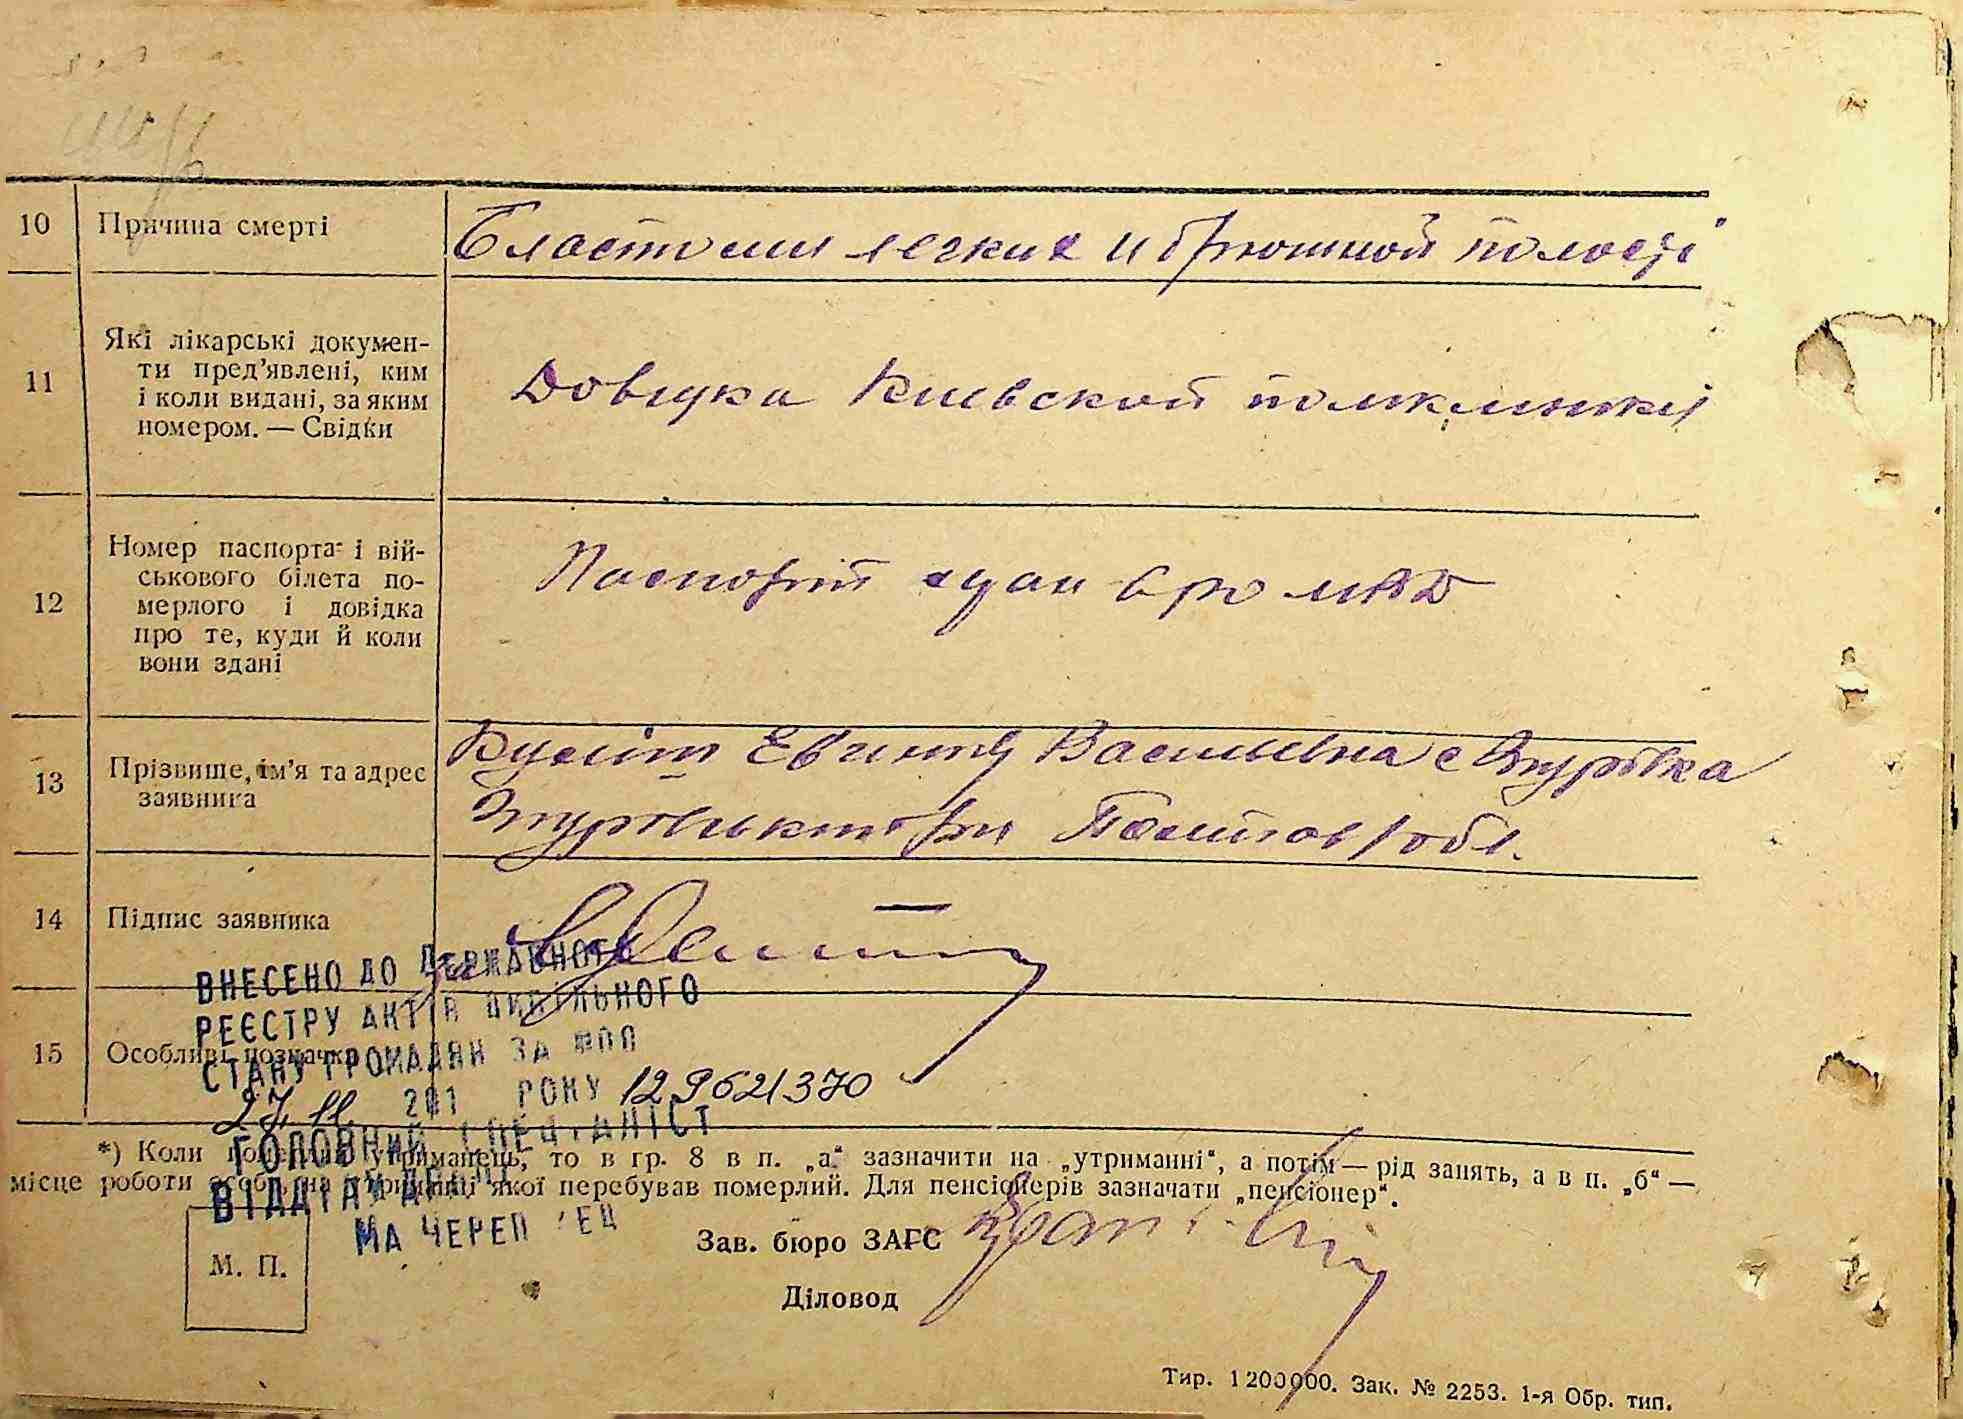 10 Причина смерті
Бластома легких и брюшной полості
11 Які лікарські докумен-
ти пред’явлені, ким
і коли видані, за яким
номером. — Свідки
Довідка Киевской поликлиники
12 Номер паспорта і вій-
ськового білета по-
мерлого і довідка
про те, куди й коли
вони здані
Паспорт здан в ро МВД
13 Прізвище, ім’я та адрес
заявника
Евгения Васильевна с Згурівка
Згурівського р-ну Полтов обл.
14 Підпис заявника
15 Особливі позначки
ВНЕСЕНО ДО ДЕРЖАВНОГО
РЕЄСТРУ АКТІВ ЦИВІЛЬНОГО
СТАНУ ГРОМАДЯН ЗА №
27.11. 201 РОКУ 129621370
ГОЛОВНИЙ СПЕЦІАЛІСТ
ВІДДІЛУ
МА ЧЕРЕП ЕЦ
*) Коли померлий утриманець, то в гр. 8 в п. „а“ зазначити на „утриманні“, а потім — рід занять, а в п. „б“ —
місце роботи особи, на утриманні якої перебував померлий. Для пенсіонерів зазначати „пенсіонер“.
М. П.
Зав. бюро ЗАГС
Діловод
Тир. 1200000. Зак. № 2253. 1-я Обр. тип.